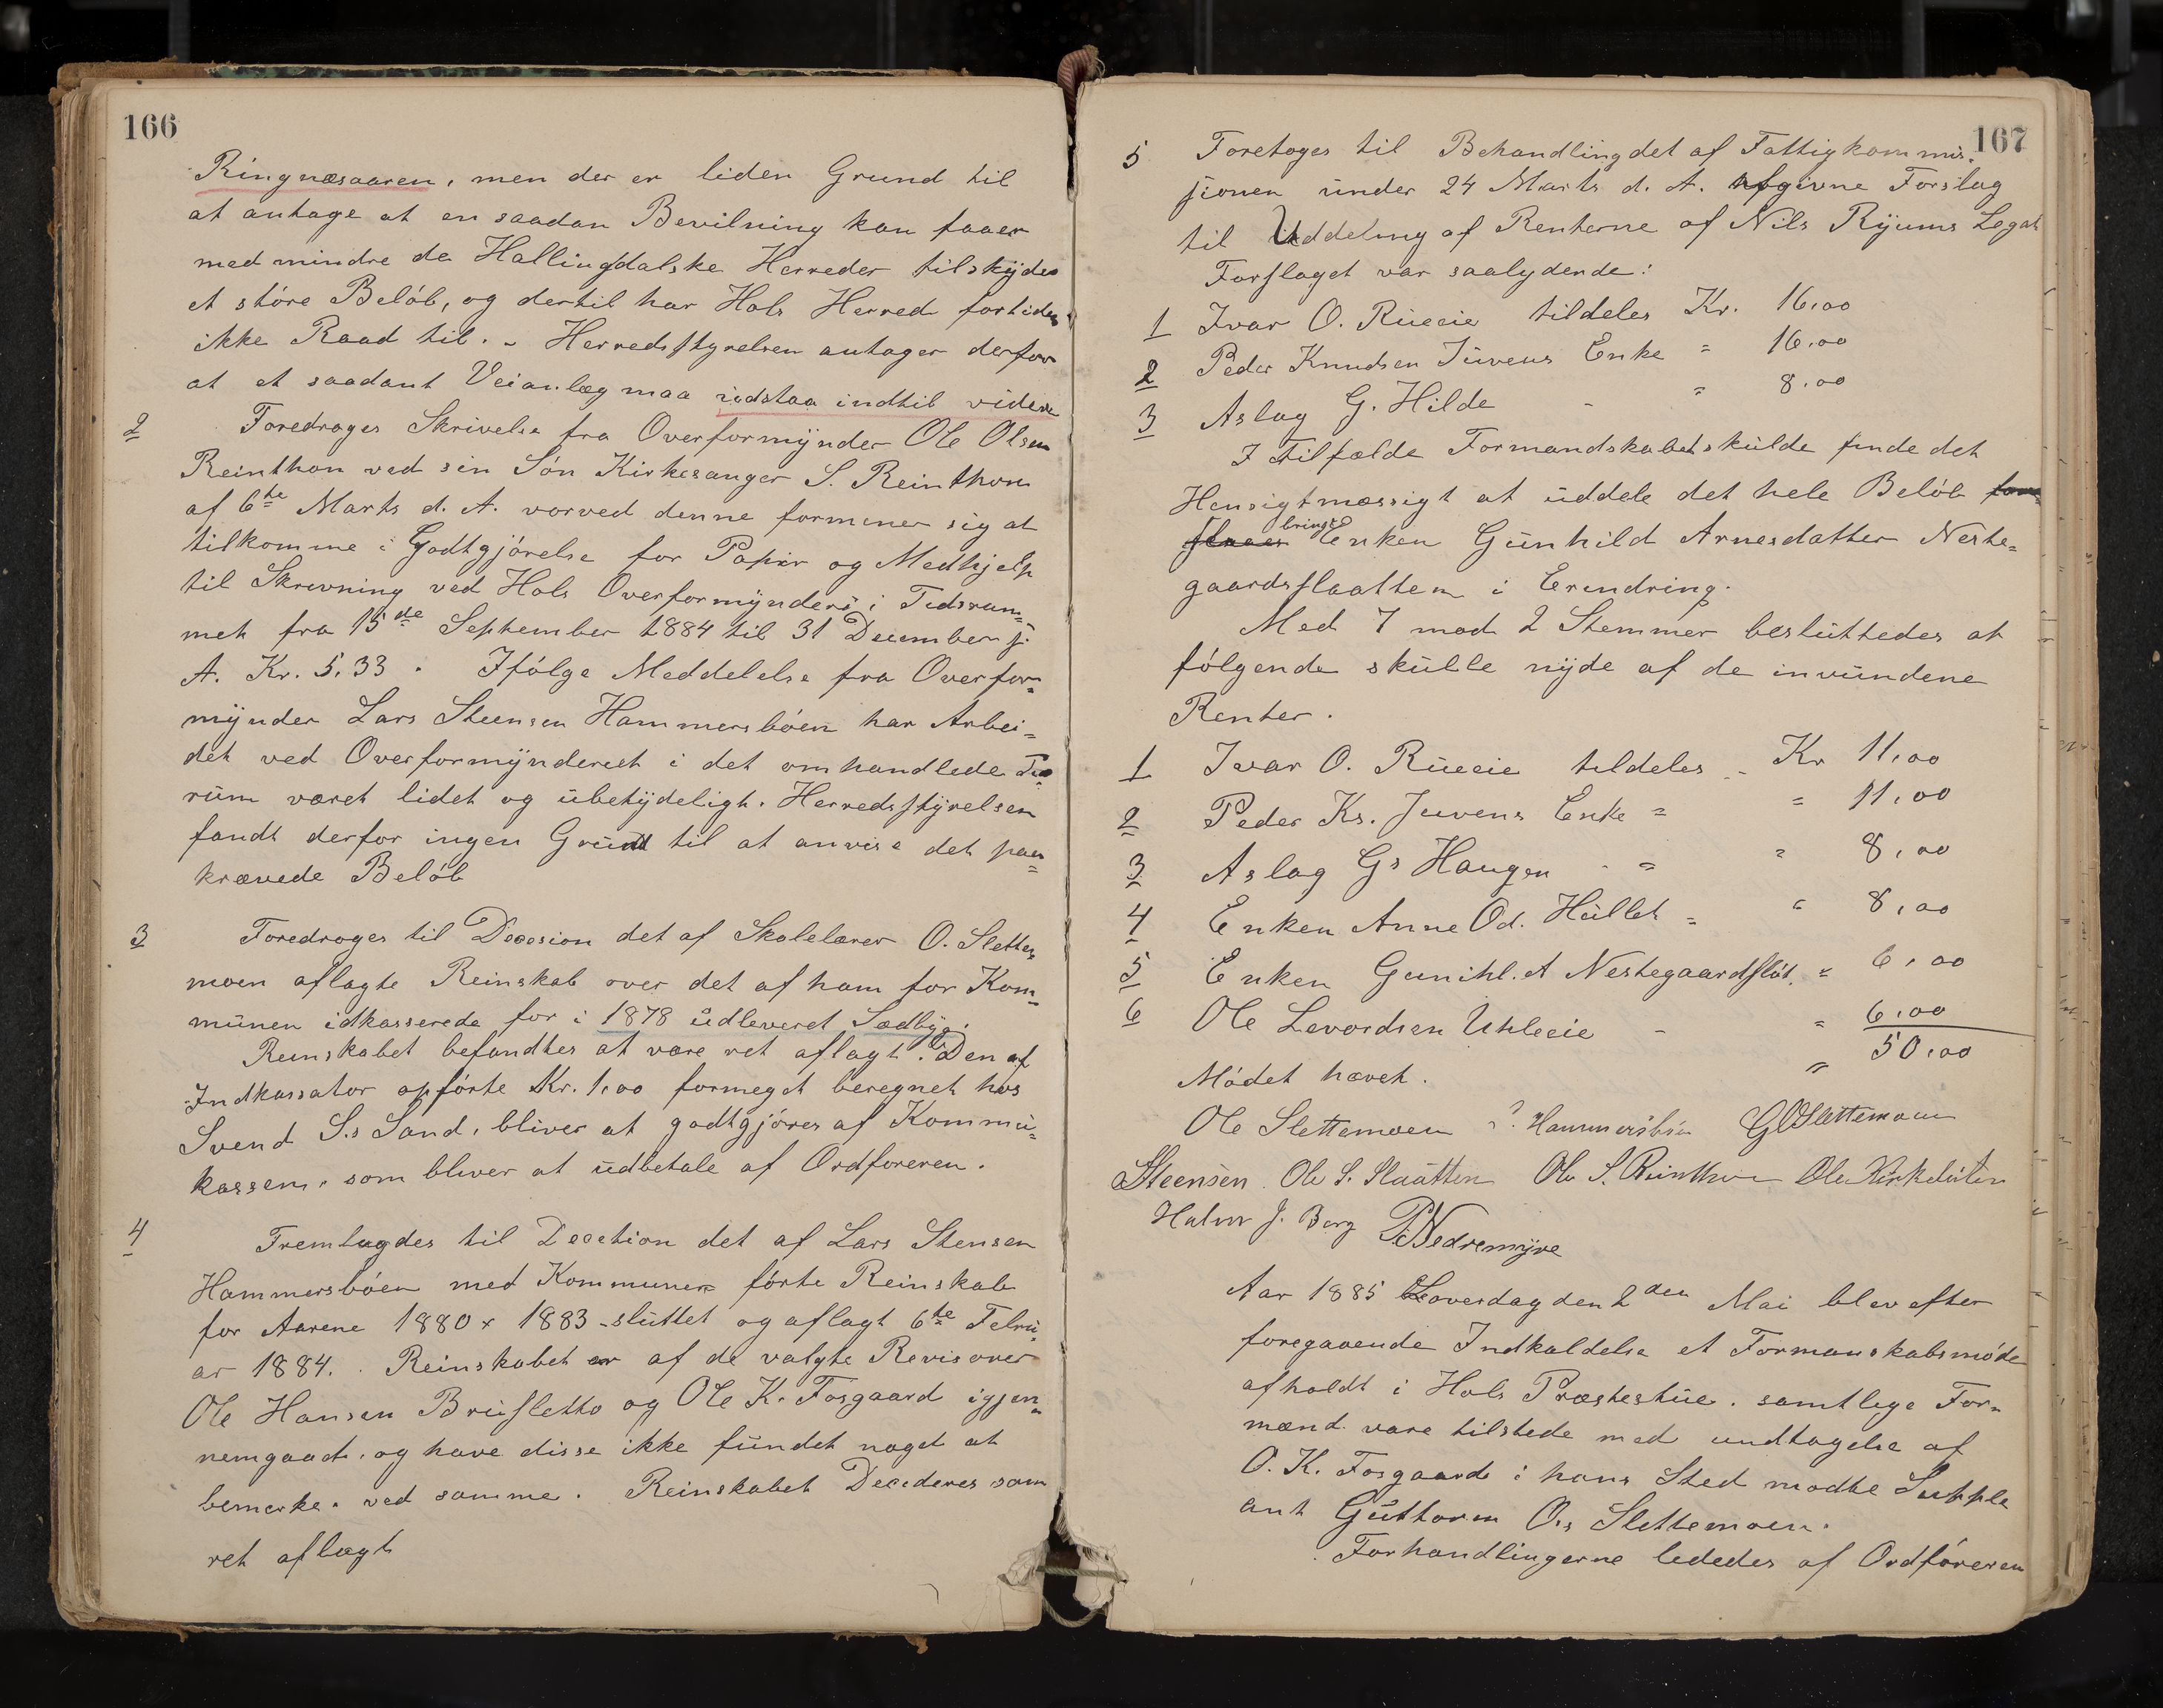 166
Ringnæsaaren, men der er liden Grund til
at antage at en saadan Bevilning kan faaes
med mindre de Hallingdalske Herreder tilskyder
et større Beløb, og dertil har Hols Herred fortiden
ikke Raad til. - Herredsstyrelsen antager derfor
at et saadant Veianlæg maa udstaa indtil videre
2 Foredroges Skrivelse fra Overformynder Ole Olsen
Reinthon ved sin Søn Kirkesanger S. Reinthon
af 6te Marts d. A. vorved denne formener sig at
tilkomme i Godtgjørelse for Papir og Medhjelp
til Skrivning ved Hols Overformynderi i Tidsrum=
met fra 15de September 1884 til 31 December f.
A. Kr. 5,33. Ifølge Meddelelse fra Overfor=
mynder Lars Steensen Hammersbøen har Arbei=
det ved Overformynderiet i det omhandlede Tids=
rum været lidet og ubetydeligt. Herredsstyrelsen
fandt derfor ingen Grund til at anvise det paa=
krævede Beløb
3 Foredroges til Decosion det af Skolelærer O. Slette=
moen aflagte Reinskab over det af ham for Kom=
munen idkasserede for i 1878 udleveret Sædbyg.
Reinskabet befandtes at være ret aflagt. Den af
Indkassator opførte Kr. 1.00 formeget beregnet hos
Svend S.s Sand, bliver at godtgjøres af Kommu=
kassen, som bliver at udbetale af Ordføreren.
4 Fremlagdes til Decetion det af Lars Stensen
Hammersbøen med Kommunen førte Reinskab
for Aarene 1880 x 1883 - sluttet og aflagt 6te Febru=
ar 1884. Reinskabet er af de valgte Revisorer
Ole Hansen Brusletto og Ole K. Fosgaard igjen=
nemgaaet, og have disse ikke fundet noget at
bemerke. ved samme. Reinskabet Decederes som
ret aflagt
167
5 Foretoges til Behandling det af Fattigkommis=
sionen under 24 Marts d. A. afgivne Forslag
til Uddeling af Renterne af Nils Ryums Legat
Forslaget var saalydende:
1 Ivar O. Rueeie tildeles Kr. 16.00
2 Peder Knudsen Juvens Enke " 16.00
3 Aslag G. Hilde - " 8.00
I Tilfælde Formandskabet skulde finde det
Hensigtmæssigt at uddele det hele Beløb fore=
slaaes bringes Enken Gunhild Arnesdatter Neste=
gaardsslaatten i Erindring.
Med 7 mod 2 Stemmer besluttedes at
følgende skulle nyde af de invundene
Renter.
1 Ivar O. Rueeie tildeles - Kr 11.00
2 Peder Ks. Juvens Enke = " 11.00
3 Aslag Gs Haugen - = " 8.00
4 Enken Anne Od. Hullet = " 8.00
5 Enken Gunihl. A Nestegaardsløt. " 6.00
6 Ole Levordsen Uhleeie - " 6.00
" 50.00
Mødet hævet.
Ole Slettemoen Hammersbøen G O Slettemoen
Steensen Ole S. Slaatten Ole S. Reinthon Ole
Halvor J. Berg P Nedremyre
Aar 1885 Løverdag den 2den Mai blev efter
foregaaende Indkaldelse et Formanskabsmøde
afholdt i Hols Præstestue. samtlege For=
mænd. vare tilstede med undtagelse af
O. K. Fosgaard i hans Sted mødte Supple
ant Guttorm O.s Slettemoen.
Forhandlingerne lededes af Ordføreren